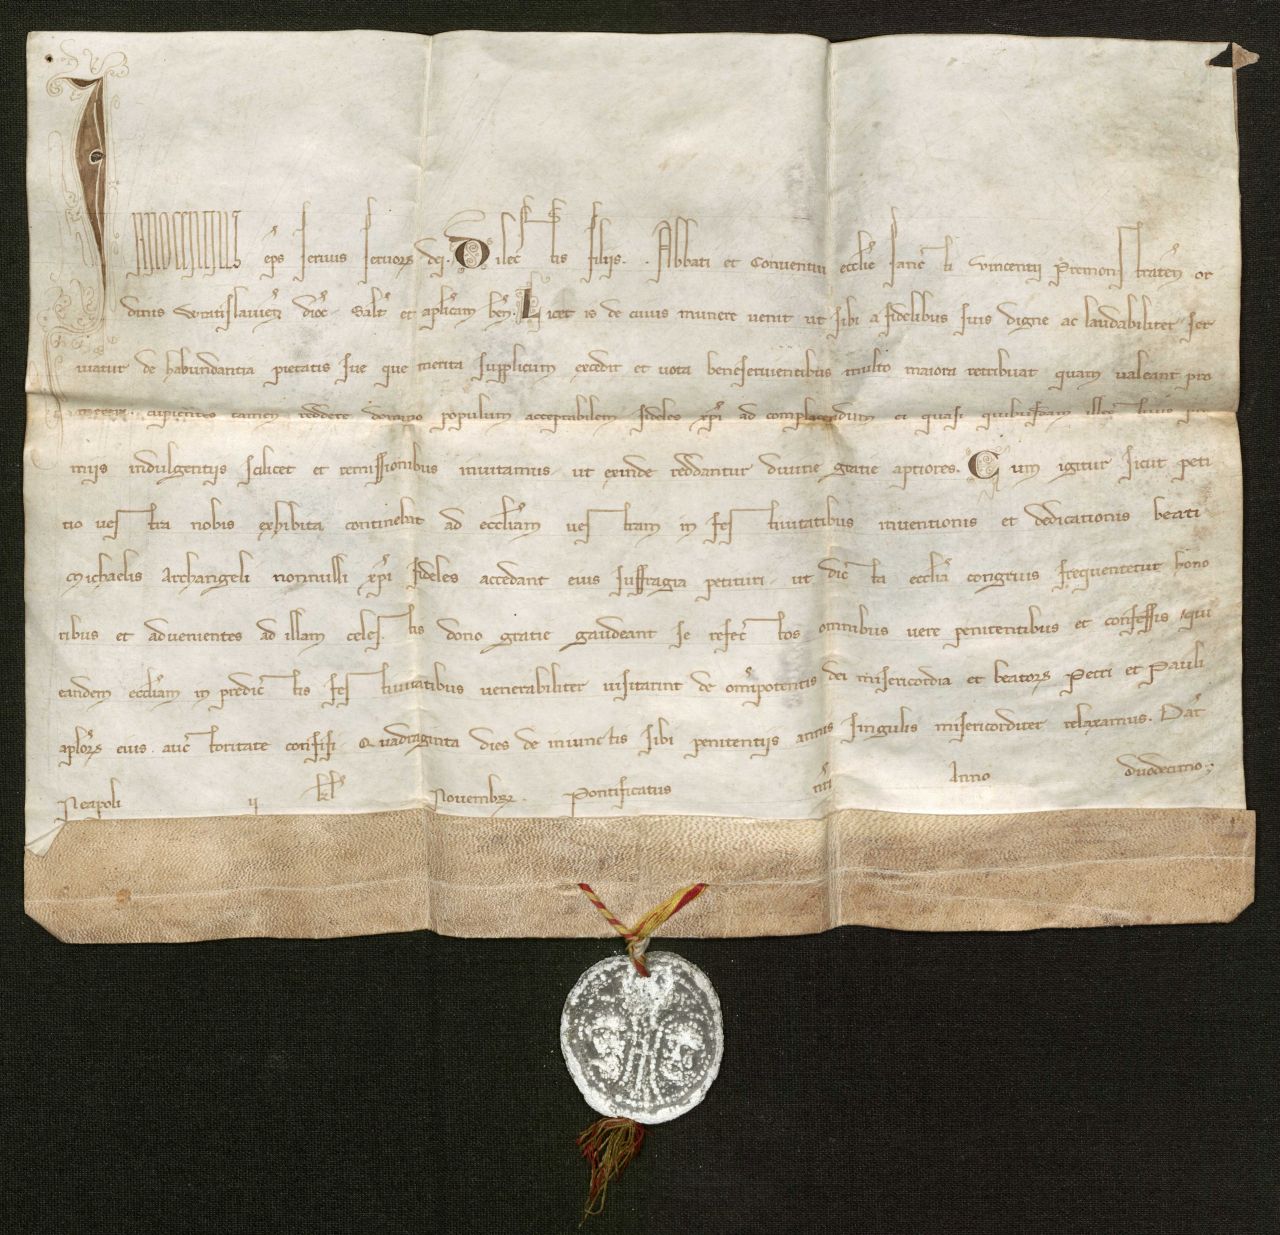 Innocentius ep̄s servus servorꝝ dei. Dilectis filiis. Abbati et Conventui eccl̄ie sancti Vincentii Premonstraten̄ or
dinis Wratislavien̄ dioc̄ Salt̄ et apl̄icam ben̄. Licet is de cuius munere venit ut sibi a fidelibus suis digne ac laudabiliter ser
viatur de habundantia pietatis sue que merita supplicum excedit et vota bene servientibus multo maiora retribuat quam valeant pro
cupientes tamen reddere domino populum acceptabilem fideles xp̄i ad complacendum ei quasi quibusdam
miis indulgentiis scilicet et remissionibus invitamus ut exinde reddantur divine gratie aptiores. Cum igitur sicut peti
tio vestra nobis exhibita continebat ad eccl̄iam vestram in festivitatibus inventionis et dedicationis beati
Michaelis Archangeli nonnulli xp̄i fideles accedant eius suffragia petituri ut dicta eccl̄ia congruis frequentetur hono
ribus et advenientes ad illam celestis dono gratie gaudeant se refectos omnibus vere penitentibus et confessis qui
eandem eccl̄iam in predictis festivitatibus venerabiliter visitarint de om̄ipotentis dei misericordia et beatorꝝ Petri et Pauli
apl̄orꝝ eius auctoritate confisi Quadraginta dies de iniunctis sibi penitentiis annis singulis misericorditer relaxamus. Dat̄
Neapoli ij kl̄ Novembr̄. Pontificatus nr̄i Anno duodecimo.